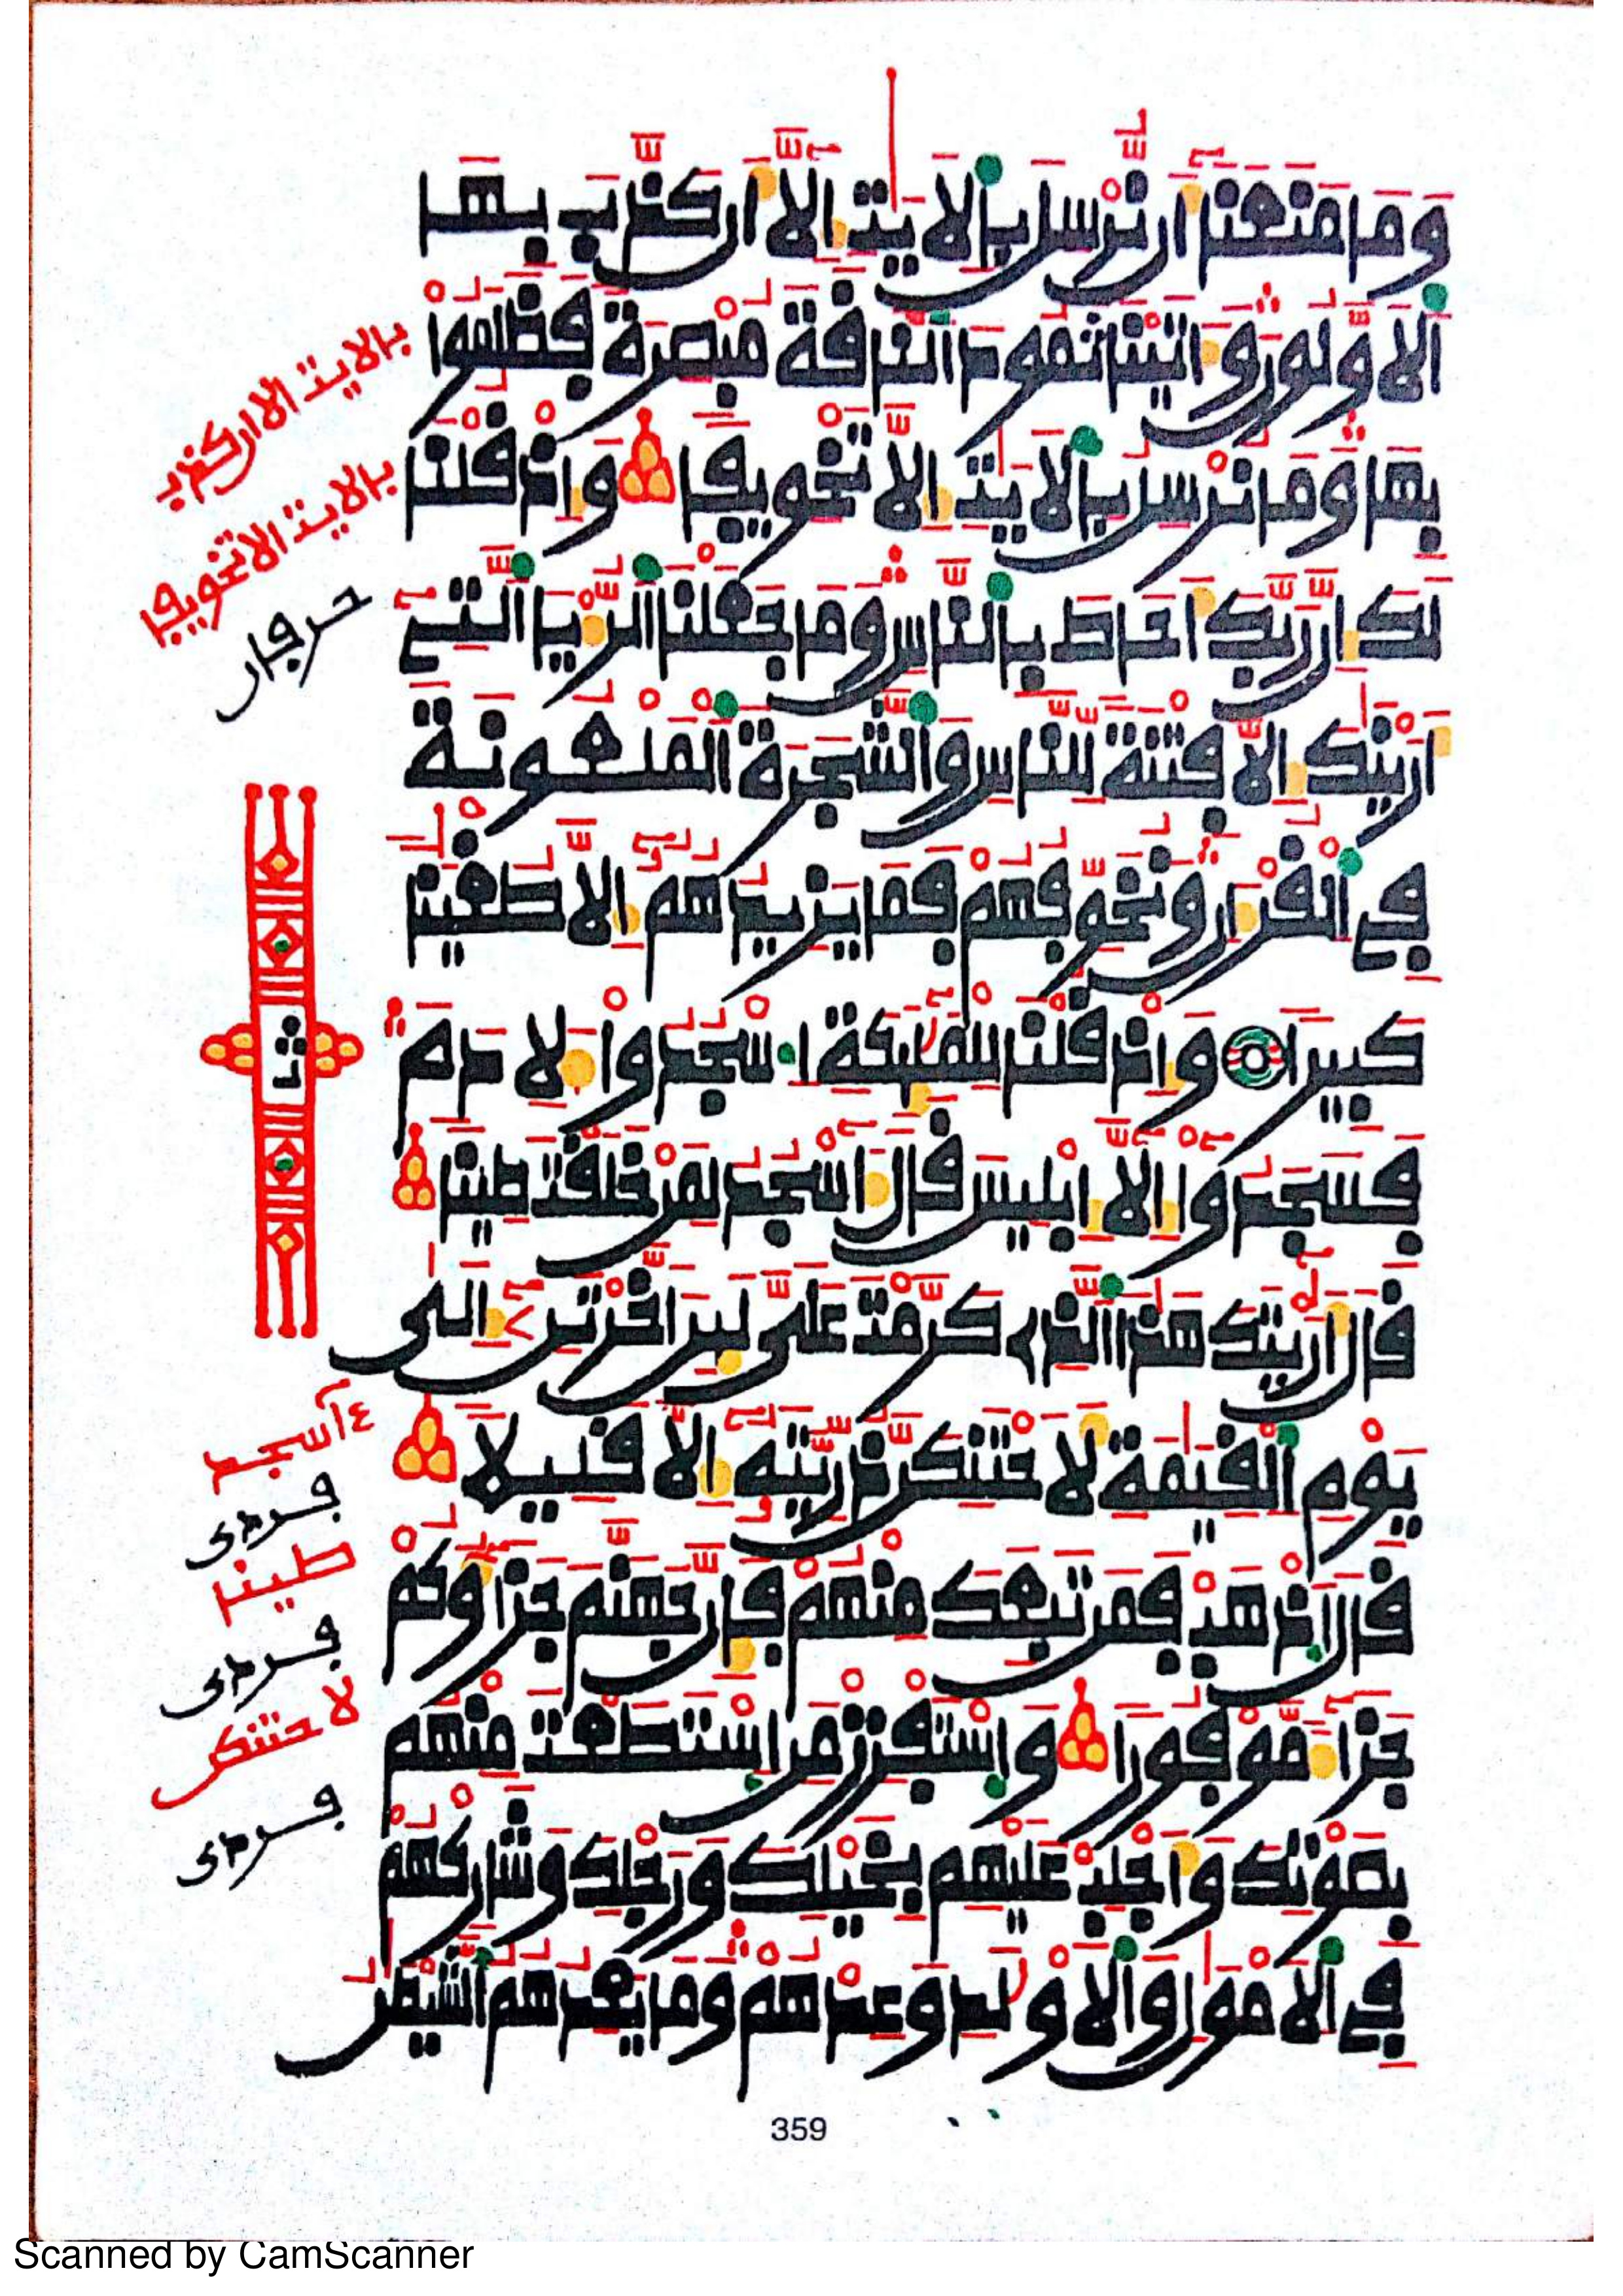 وَمَا مَنَعَنَا أَن نُّرْسِلَ بِالَايَٰتِ إِلَّا أَن كَذَّبَ بِهَا
اَلَاوَّلُونَ وَءَاتَيْنَا ثَمُودَ اَلنَّاقَةَ مُبْصِرَةً فَظَلَمُواْ
بِهَا وَمَا نُرْسِلُ بِالَايَٰتِ إِلَّا تَخْوِيفًا وَإِذْ قُلْنَا
لَكَ إِنَّ رَبَّكَ أَحَاطَ بِالنَّاسِ وَمَا جَعَلْنَا اَلرُّءْيَا اَلتِي
أَرَيْنَٰكَ إِلَّا فِتْنَةً لِّلنَّاسِ وَالشَّجَرَةَ اَلْمَلْعُونَةَ
فِي اِلْقُرْءَانِ وَنُخَوِّفُهُمْ فَمَا يَزِيدُهُمُ إِلَّا طُغْيَٰنًا
كَبِيرًا وَإِذْ قُلْنَا لِلْمَلَٰئِكَةِ اِسْجُدُواْ لِأَدَمَ
فَسَجَدُواْ إِلَّا إِبْلِيسَ قَالَ ءَاسْجُدُ لِمَنْ خَلَقْتَ طِينًا
قَالَ أَرَٰيْتَكَ هَٰذَا اَلذِي كَرَّمْتَ عَلَيَّ لَئِنَ اَخَّرْتَنِ إِلَىٰ
يَوْمِ اِلْقِيَٰمَةِ لَأَحْتَنِكَنَّ ذُرِّيَّتَهُ إِلَّا قَلِيلًا
قَالَ اَذْهَبْ فَمَن تَبِعَكَ مِنْهُمْ فَإِنَّ جَهَنَّمَ جَزَاؤُكُمْ
جَزَاءً مَّوْفُورًا وَاسْتَفْزِزْ مَنِ اِسْتَطَعْتَ مِنْهُم
بِصَوْتِكَ وَأَجْلِبْ عَلَيْهِم بِخَيْلِكَ وَرَجْلِكَ وَشَارِكْهُمْ
فِي اِلَامْوَٰلِ وَالَاوْلَٰدِ وَعِدْهُمْ وَمَا يَعِدُهُمُ اُلشَّيْطَٰنُ
بالايت الا ان كذب
بالايت الا تخويفا
حرفان
ثمن
ءآسجد
فردى
طينا
فردى
لاحتنكن
فردى
359
Scanned by CamScanner